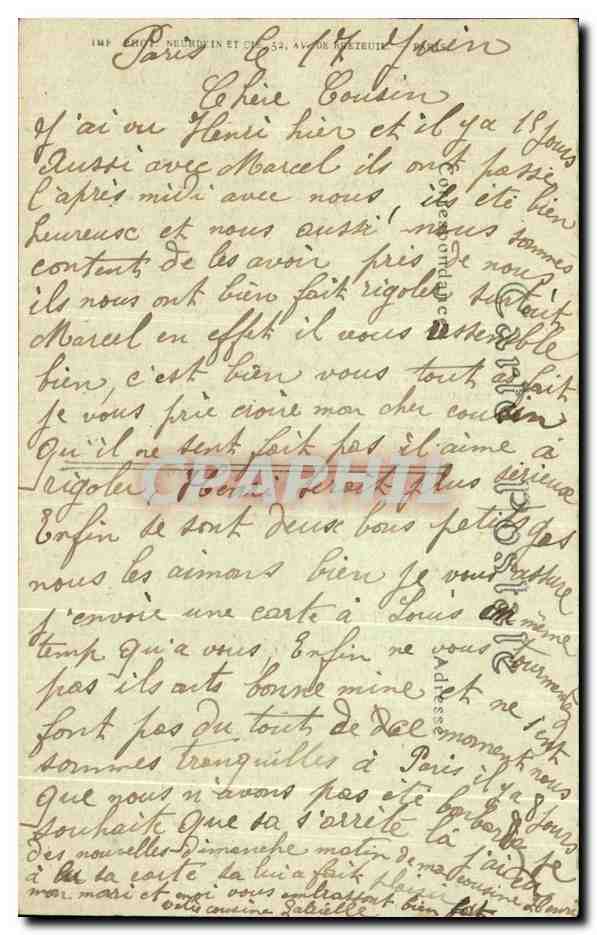 IMP. PHOT. NEURDEIN ET Cie, 52, AV. DE BRETEUIL PARIS
Paris le 17 Juin
Chère Cousin
J'ai vu Henri hier et il y a 15 jours
Aussi avec Marcel ils ont passé
l'après midi avec nous, ils été bien
heureuse et nous aussi nous sommes
content de les avoir près de nous
ils nous ont bien fait rigoler surtout
Marcel en effet il vous ressemble
bien, c'est bien vous tout à fait
je vous prie croire mon cher cousin
qu'il ne sent fait pas il aime à
rigoler, Henri serait plus sérieux
Enfin se sont deux bons petits gas
nous les aimons bien je vous rassure
j'envoie une carte à Louis en même
temp qu'a vous, Enfin ne vous tourmentez
pas ils onts bonne mine et ne s'en
font pas du tout de ce moment nous
sommes tranquilles à Paris il y a 8 jours
que nous n'avons pas été je
souhait que sa s'arrête là j'ai eu
des nouvelles dimanche matin de ma cousine Henri
à lu sa carte sa lui a fait plaisir
mon mari et moi vous embrassont bien fort
votre cousine Gabrielle
Correspondance
Carte postale
Adresse
CPAPHIL